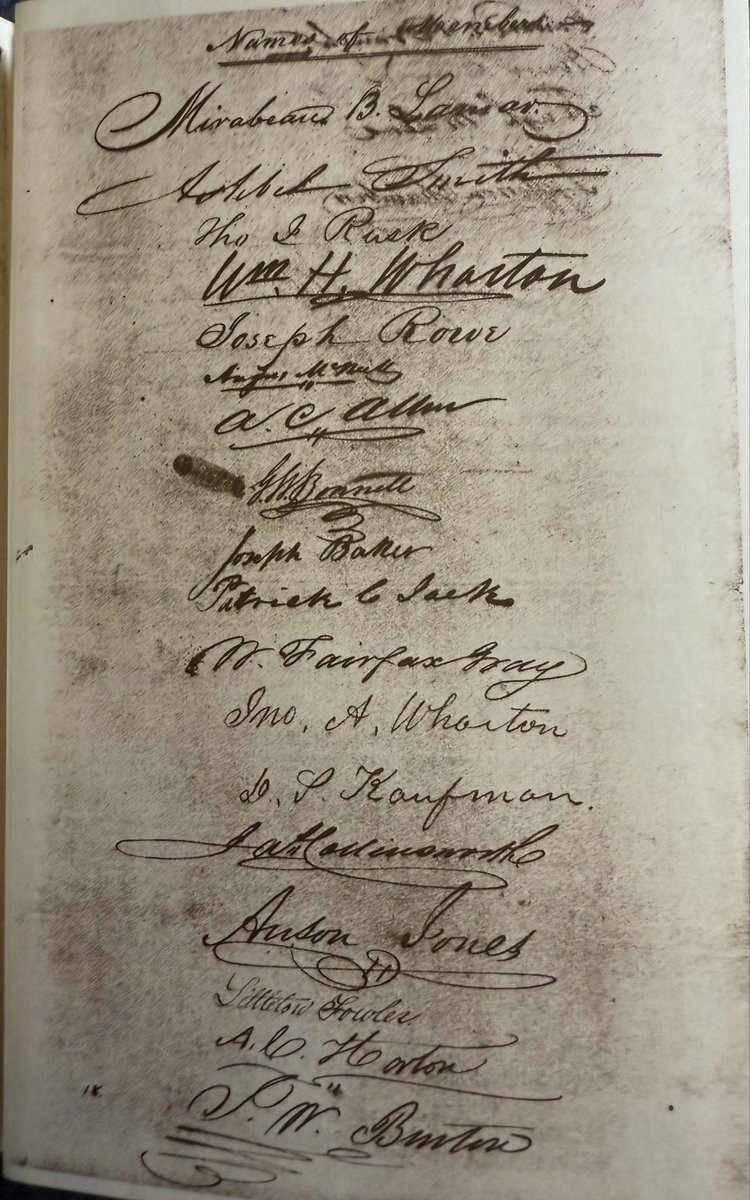 Names of Members
Mirabeau B. Lamar.
Ashbel Smith
Tho J Rusk
Wm. H. Wharton
Joseph Rowe
Angus McNeill
A. C. Allen
G. W. Bonnell
Joseph Baker
Patrick C Jack
W. Fairfax Gray
Jno. A. Wharton
D. S. Kaufman.
Jas Collinsworth
Anson Jones
Littleton Fowler
A. C. Horton
I. W. Burton
18.